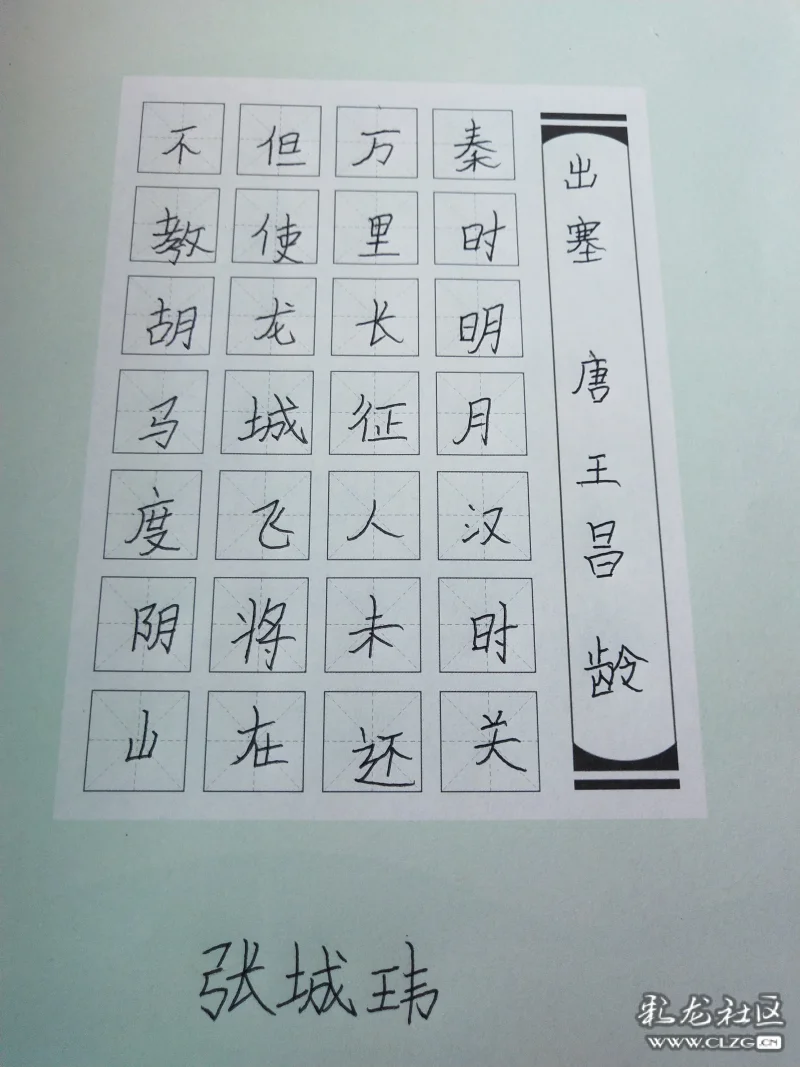 出塞 唐 王昌龄
秦时明月汉时关
万里长征人未还
但使龙城飞将在
不教胡马度阴山
张城玮
彩龙社区
WWW.CLZG.CN